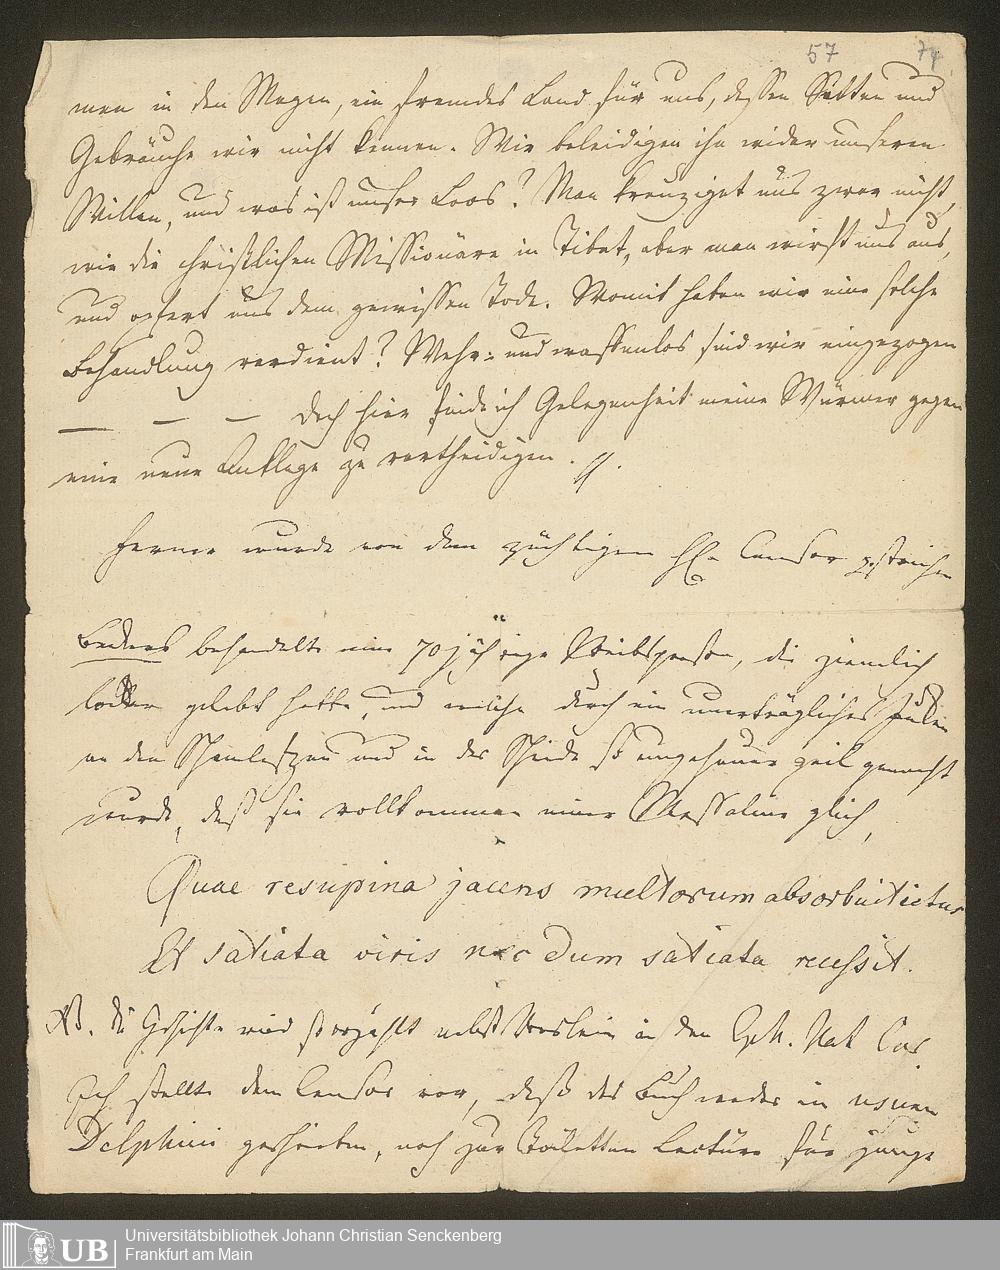 57 74
man in den Magen, ein fremdes Land für uns, dessen Sitten und
Gebräuche wir nicht kennen. Wir beleidigen ihn wider unseren
Willen, und was ist unser Loos? Man kreuziget uns zwar nicht,
wie die christlichen Missionäre in Tibet, aber man wirft uns aus,
und opfert uns dem gewissen Tode. Womit haben wir eine solche
Behandlung verdient? Wehr- und waffenlos sind wir eingezogen
— — — Doch hier finde ich Gelegenheit meine Würmer gegen
eine neue Anklage zu vertheidigen.
Ferner wurde von dem züchtigen H. Censor gestrichen
behandelte eine 70jährige Weibsperson, die ziemlich
locker gelebt hatte, und welche durch ein unerträgliches Jucken
an den Schamlefzen und in der Scheide so ungeheuer geil gemacht
wurde, daß sie vollkommen einer Messaline glich,
Quae resupina jacens multorum absorbuit ictus
Et satiata viris necdum satiata recessit.
NB. die Geschichte wird so erzählt nebst in den Eph. Nat Cur
Ich stellte dem Censor vor, daß das Buch weder in usum
Delphini geschrieben, noch zur Toiletten Lectüre für junge
UB Universitätsbibliothek Johann Christian Senckenberg
Frankfurt am Main